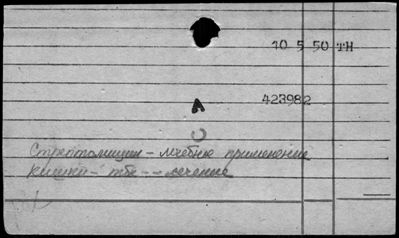 10 5 50 TH
А
423982
С
Стрептомицин - лечебное применение
Кишки - тбк - - лечение